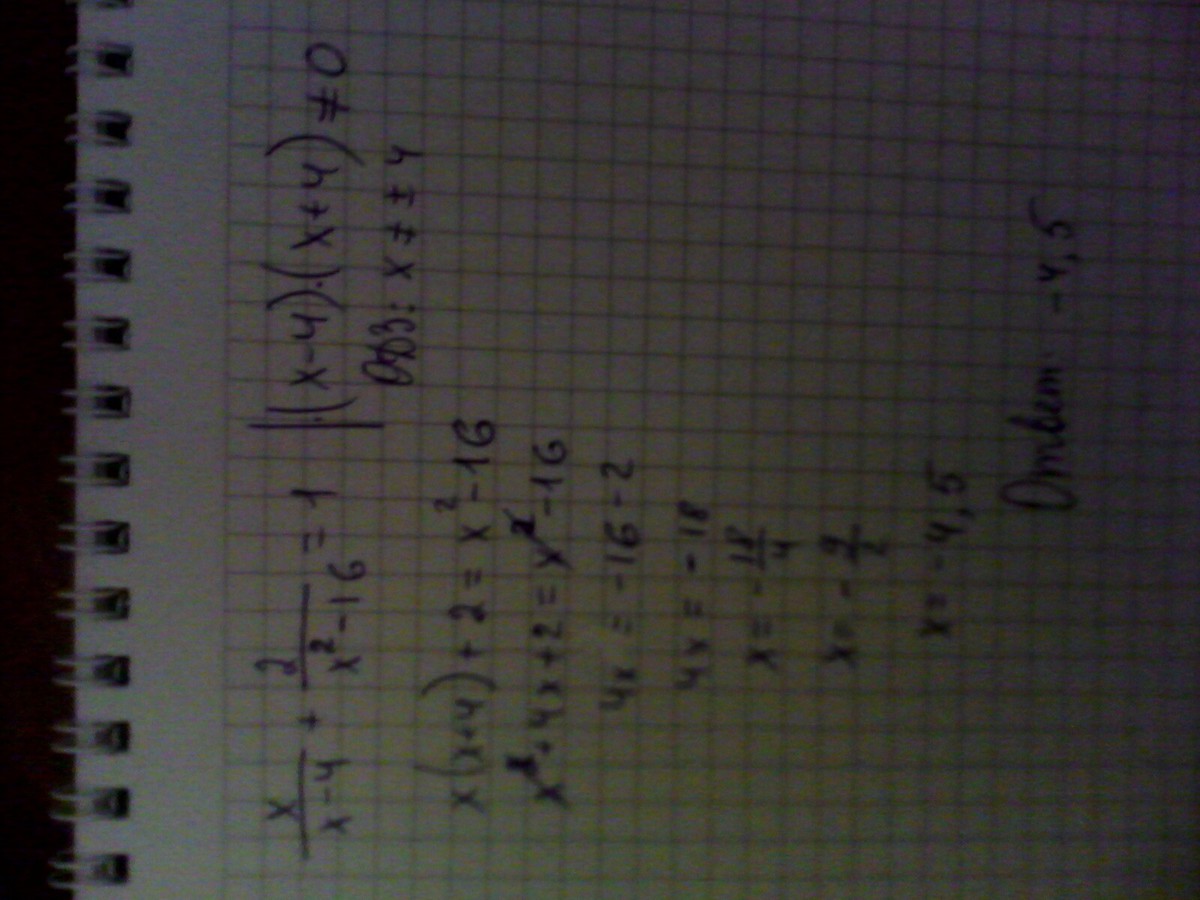 x/(x-4) + 2/(x²-16) = 1 |·(x-4)·(x+4) ≠ 0
ОДЗ: x ≠ ± 4
x(x+4) + 2 = x² - 16
x² + 4x + 2 = x² - 16
4x = -16 - 2
4x = - 18
x = - 18/4
x = - 9/2
x = - 4,5
Ответ -4,5